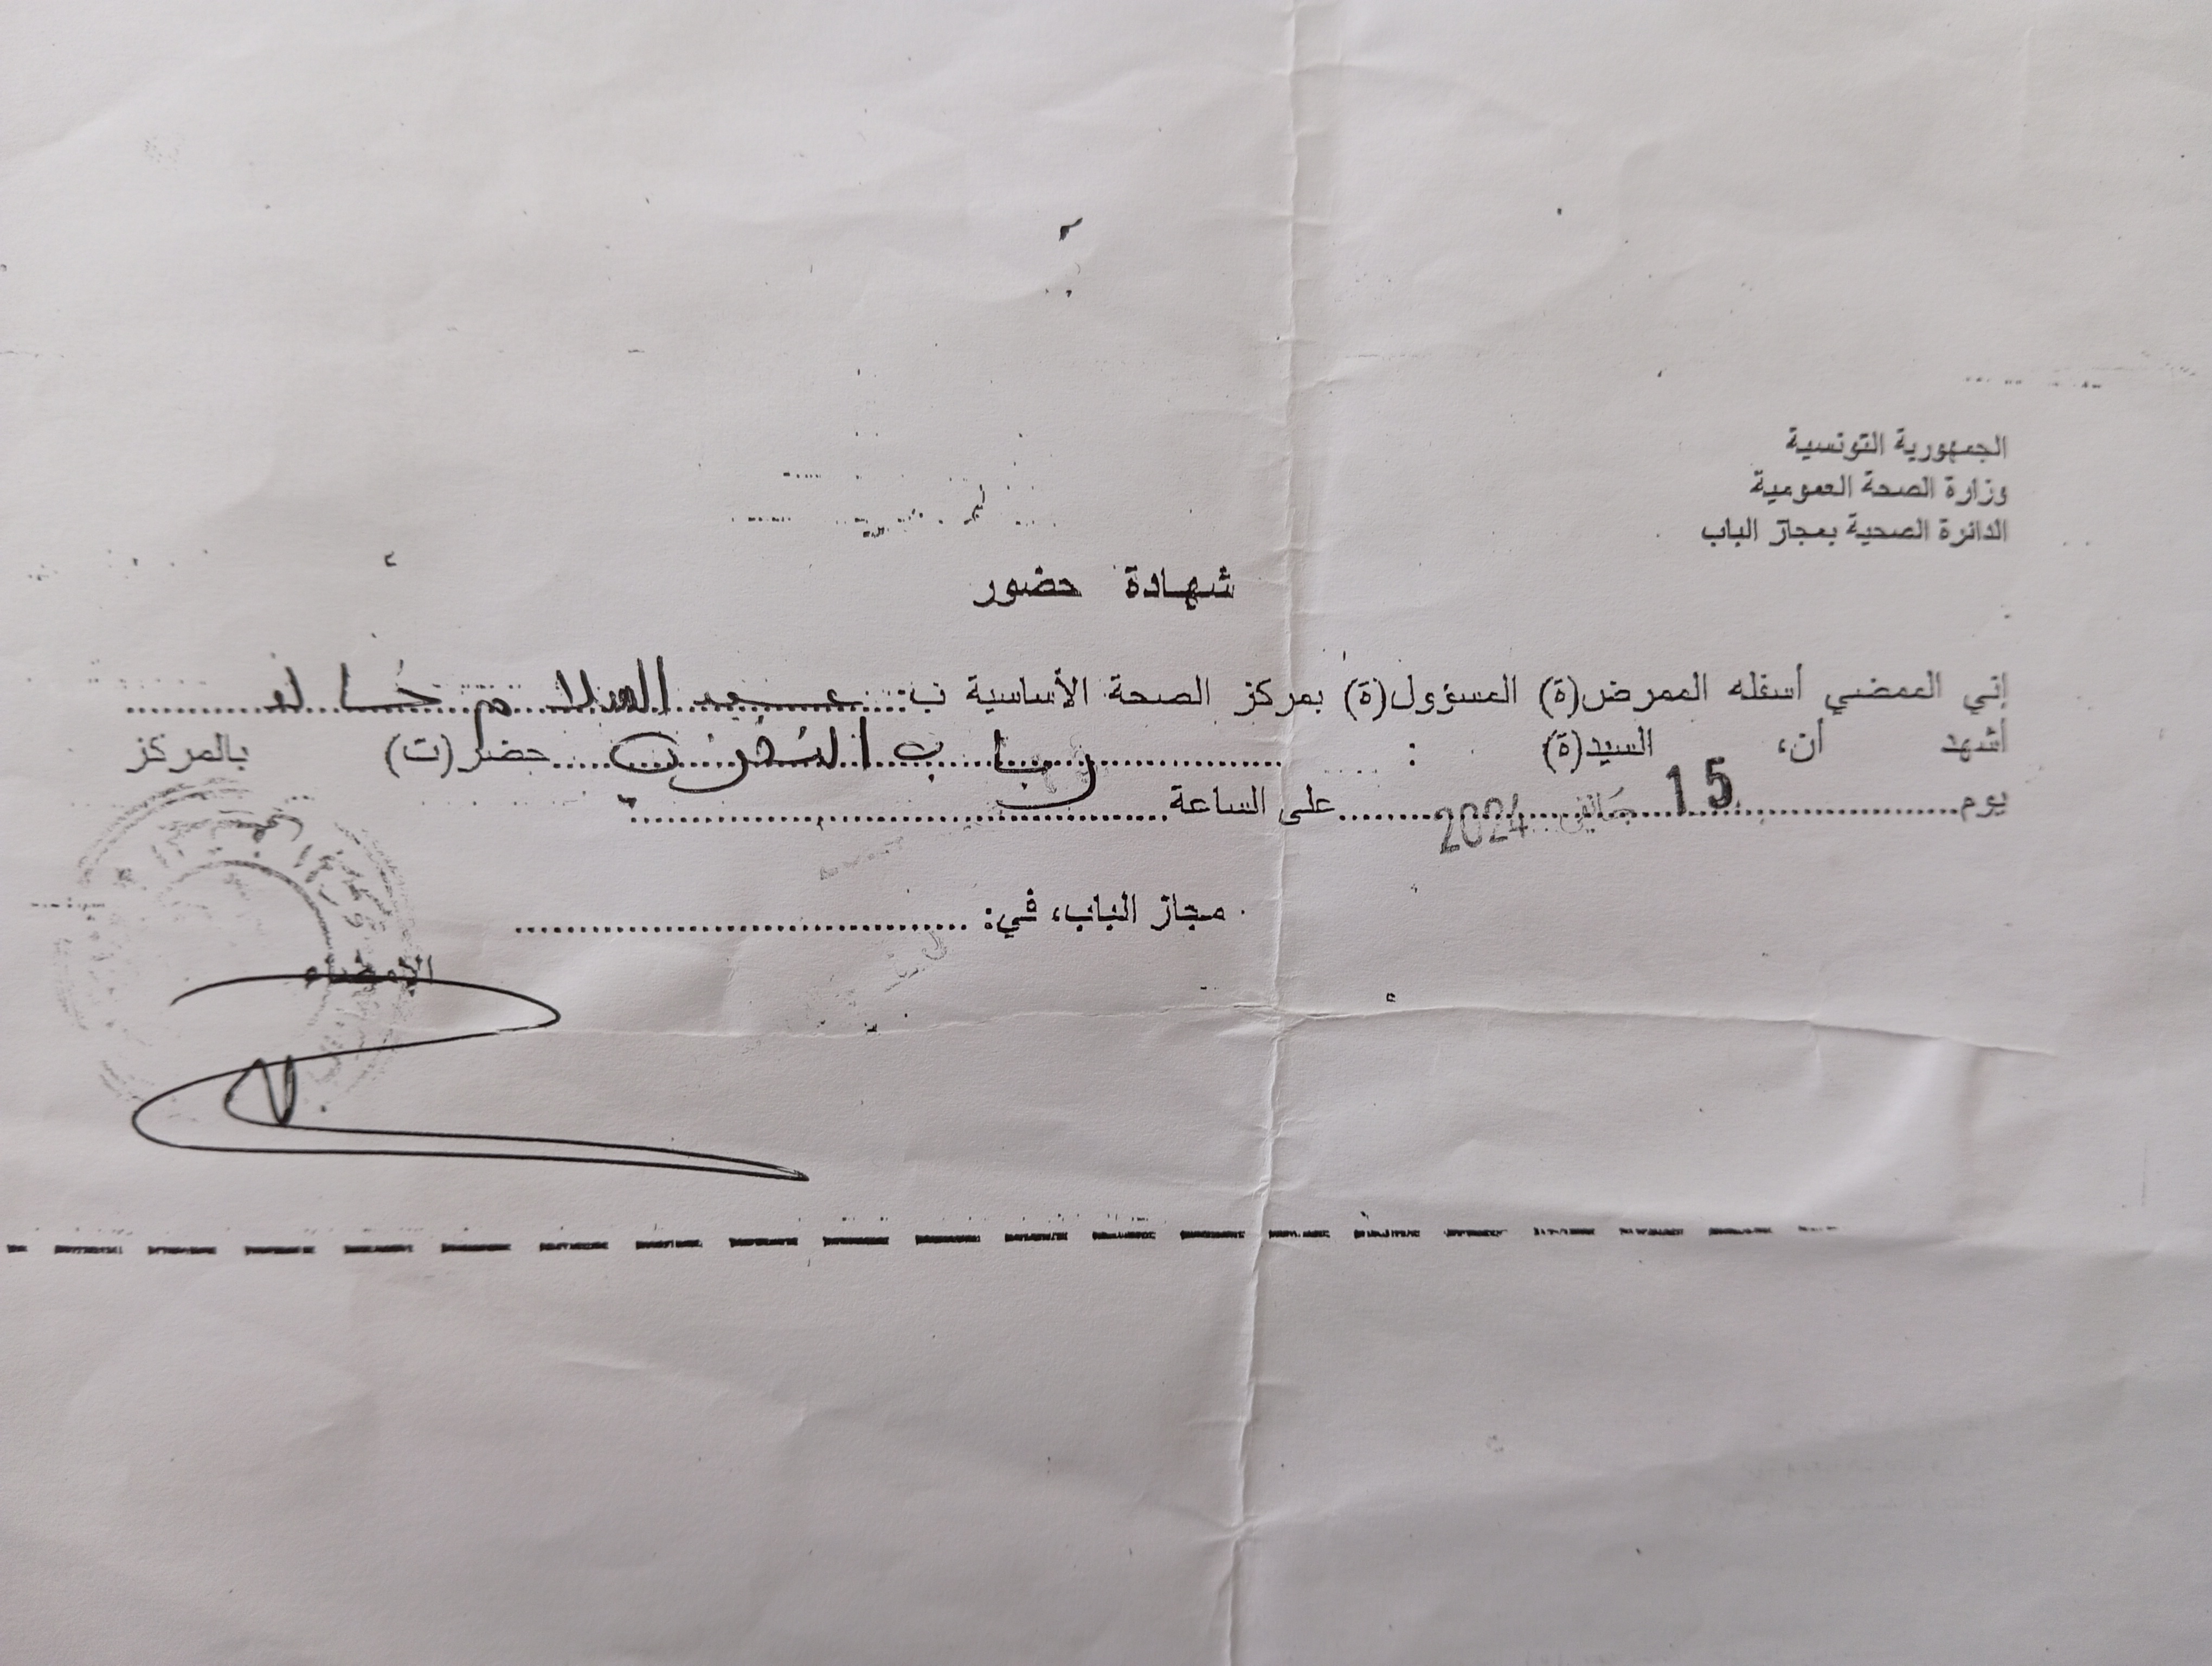 الجمهورية التونسية
وزارة الصحة العمومية
الدائرة الصحية بمجاز الباب
شهادة حضور
إني الممضي أسفله الممرض(ة) المسؤول(ة) بمركز الصحة الأساسية ب: عبد السلام
أشهد أن، السيد(ة) : رباب حضر(ت) بالمركز
يوم 15 جانفي 2024 على الساعة
مجاز الباب، في:
الإمضاء